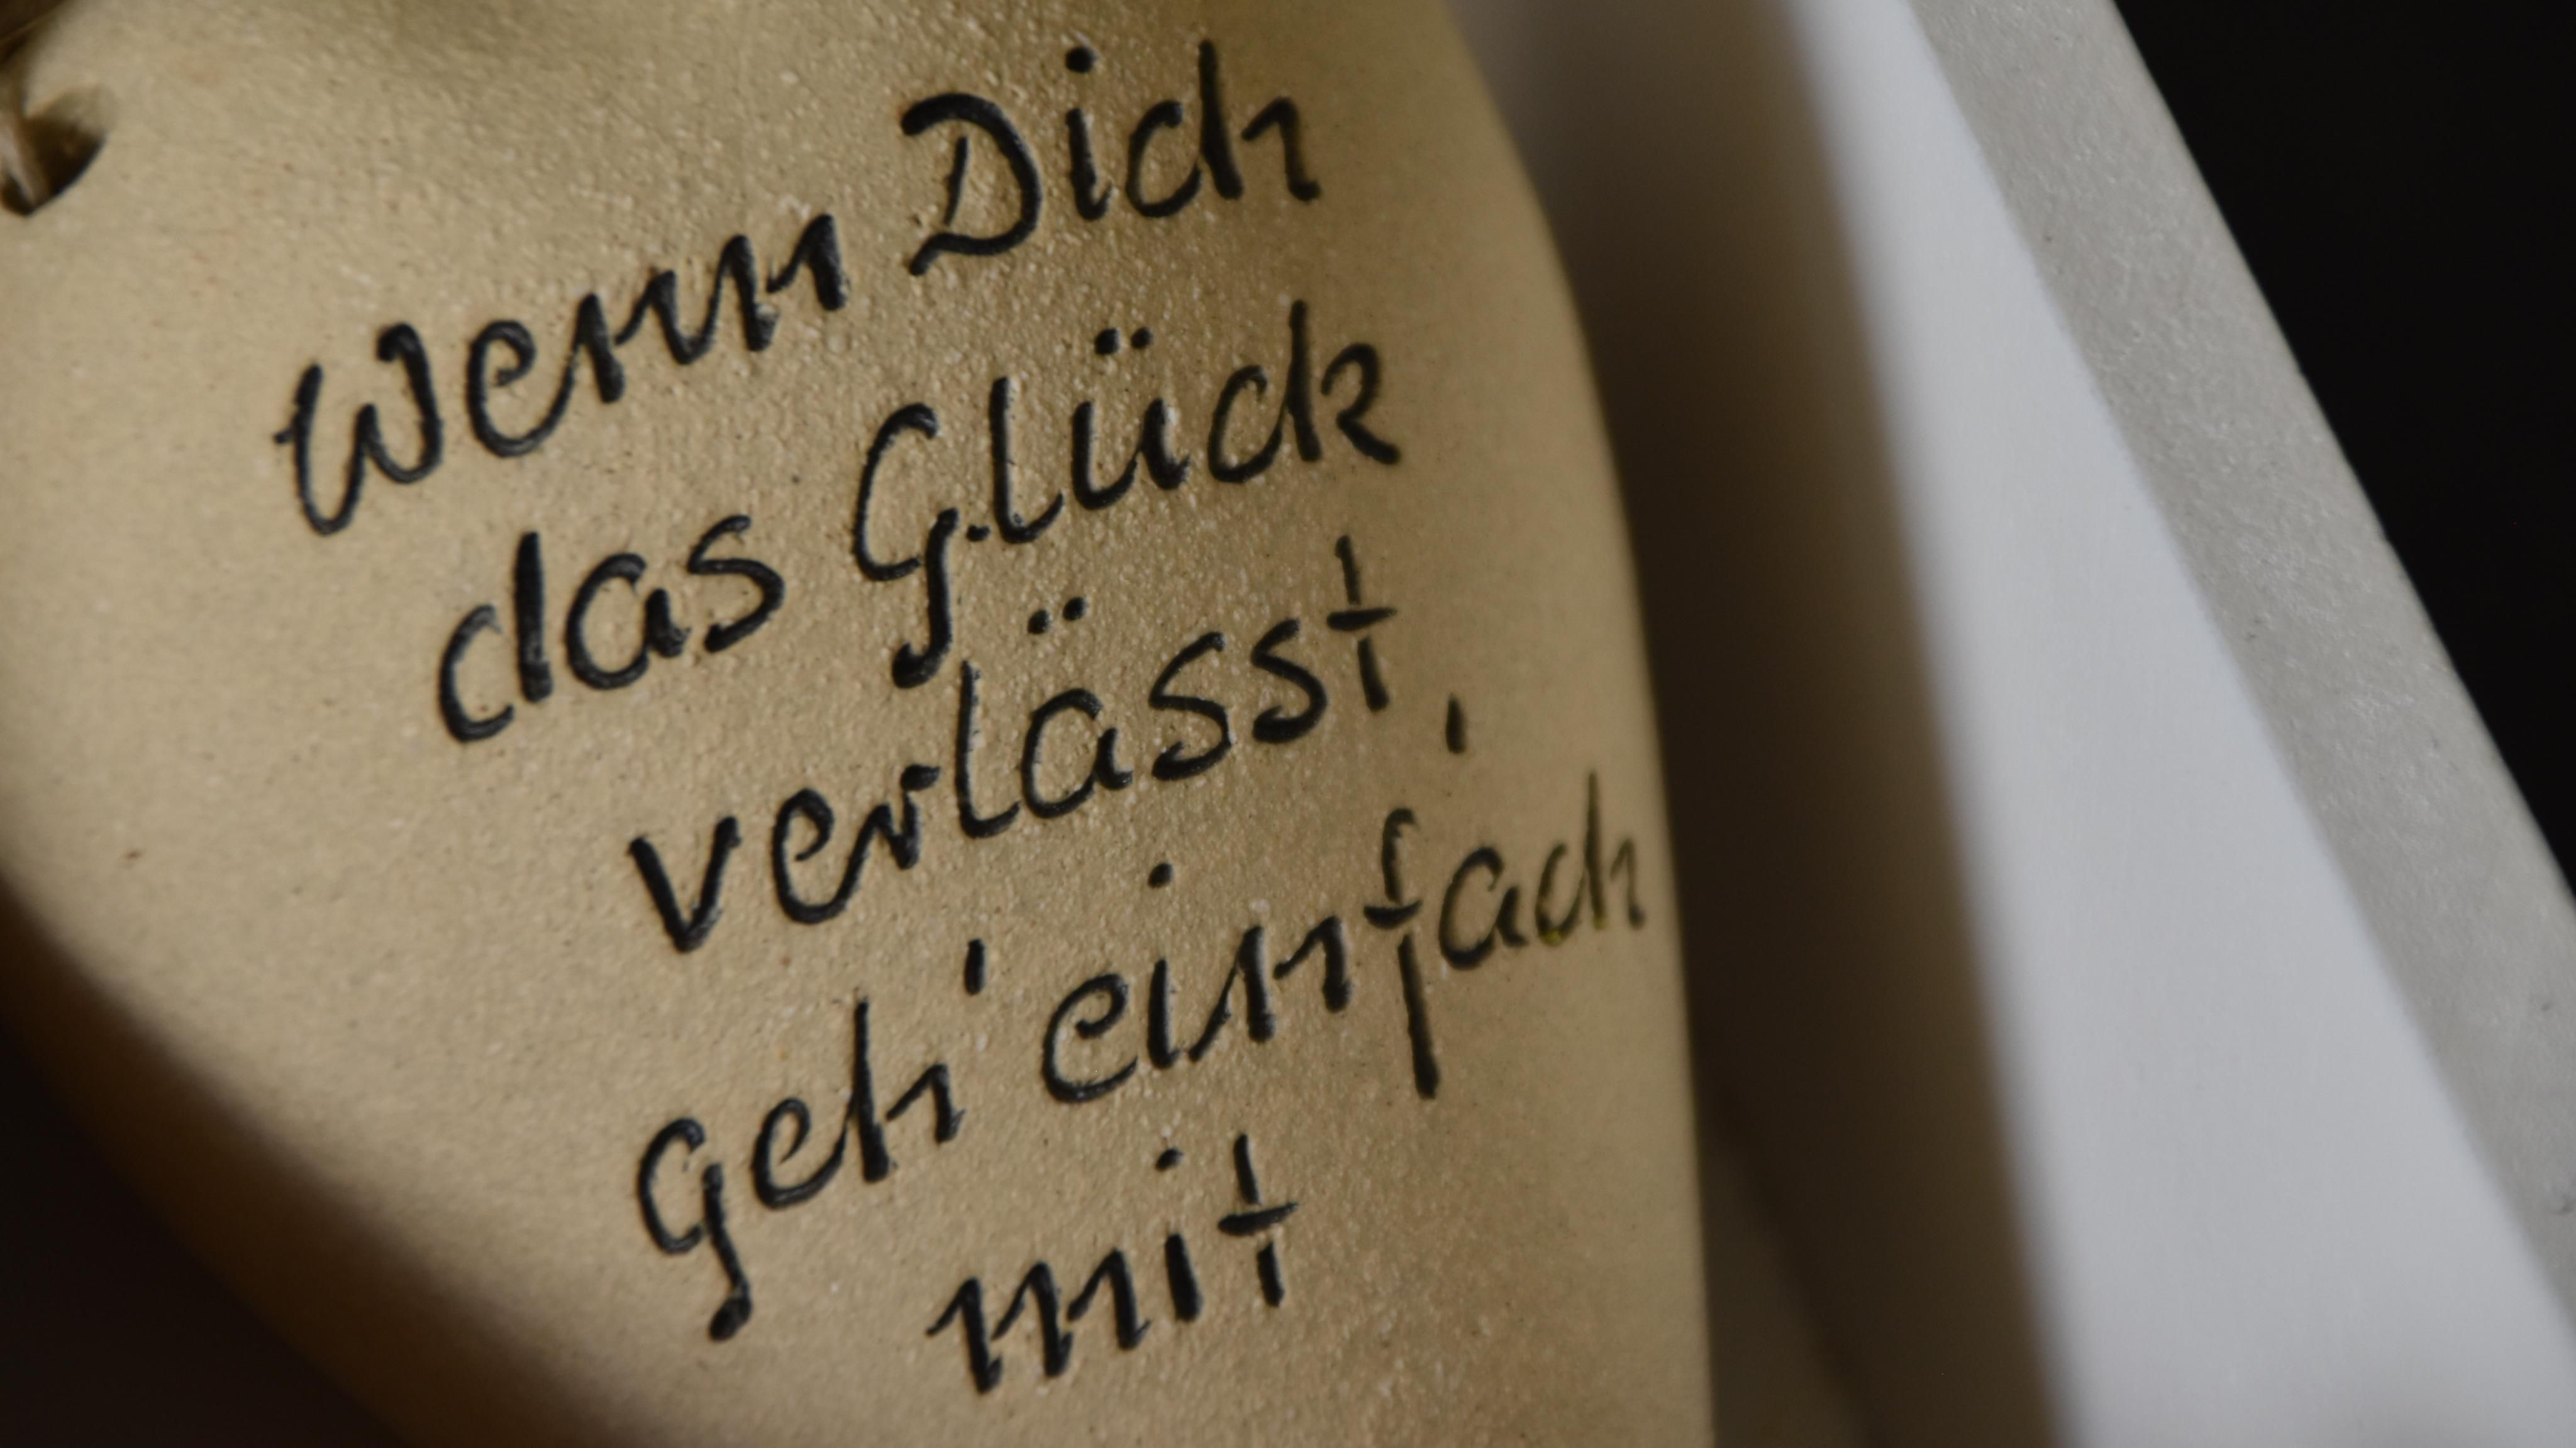 Wenn Dich
das Glück
verlässt,
geh' einfach
mit